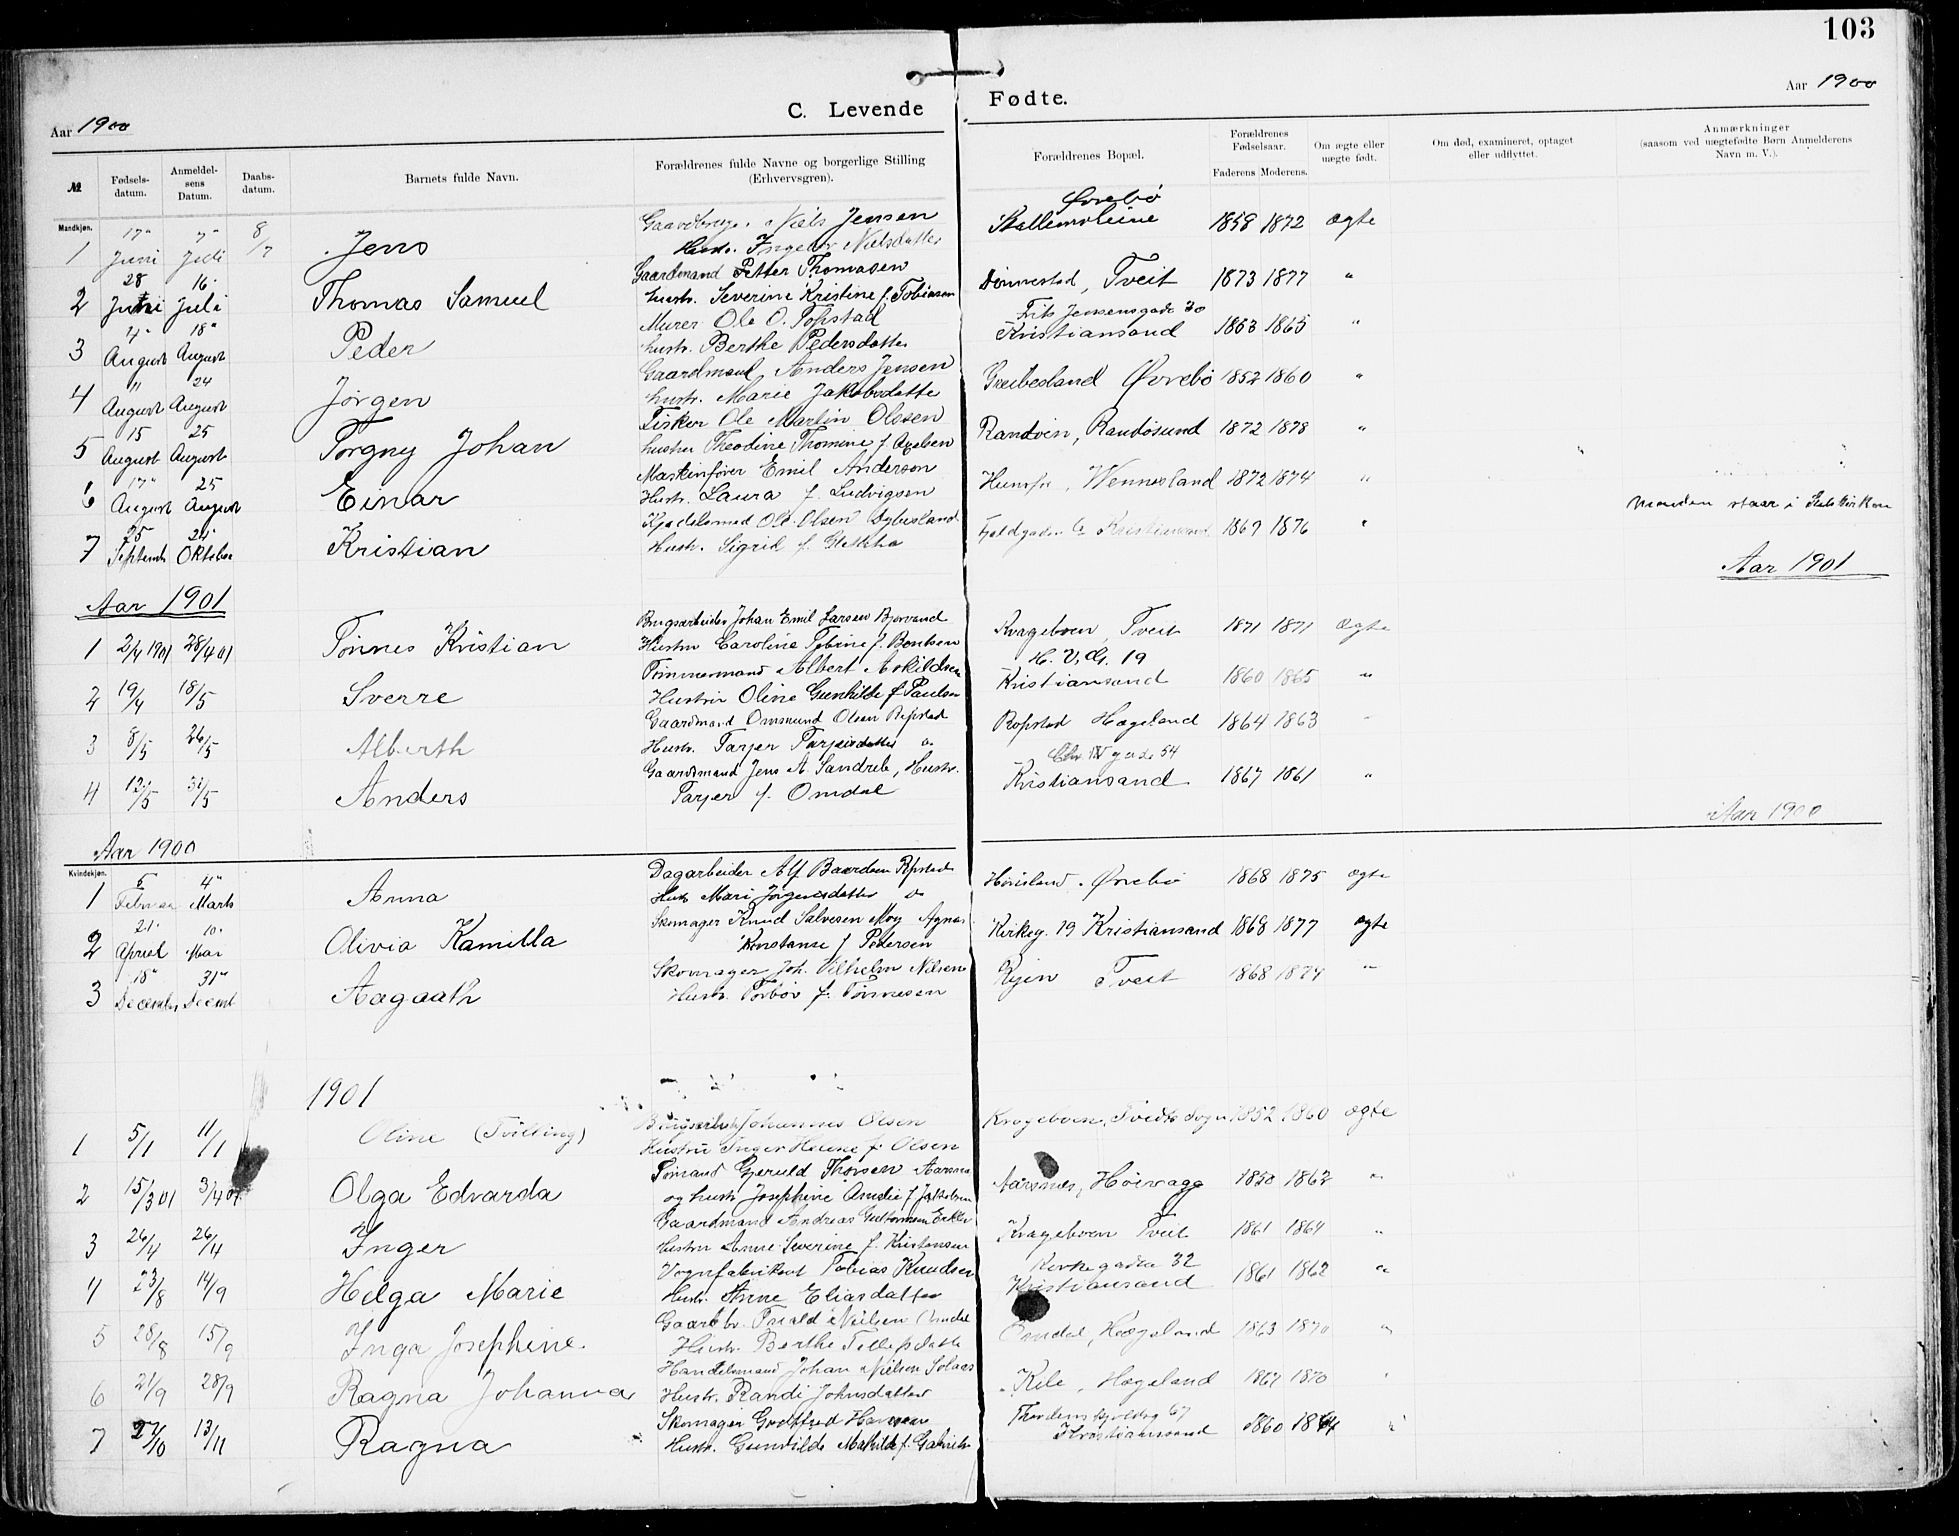 103
Aar 1900
C. Levende Fødte.
Aar 1900
№
Fødselsdatum.
Anmeldelsens Datum.
Daabsdatum.
Barnets fulde Navn.
Forældrenes fulde Navne og borgerlige Stilling (Erhvervsgren).
Forældrenes Bopæl.
Forældrenes Fødselsaar.
Faderens Moderens.
Om ægte eller uægte født.
Om død, examineret, optaget eller udflyttet.
Anmærkninger (saasom ved uægtefødte Børn Anmelderens Navn m. V.).
Mandkjøn.
1 17" Juni 7" Juli 8/7 Jens Niels Jensen Øvrebö 1858 1872 ægte
Hustr. Ingebor Nielsdatter
2 28 Juni 16 Juli Thomas Samuel Gaardmand Petter Thomasen Dönnestad, Tveit 1873 1877 "
hustr. Severine Kristine f. Tobiasen
3 4" August 18" August Peder Murer Ole O. Fritz Jensensgade 30 Kristiansand 1863 1865 "
hustr. Berthe Pedersdatter
4 " August 24 August Jörgen Gaardmand Anders Jensen Greibesland Øvrebö 1852 1860 "
hustr. Marie Jakobsdatte
5 15 August 25 August Torgny Johan Fisker Ole Martin Olesen Randöen, Randösund 1872 1878 "
hustru Theodine Thomine f. Axelsen
6 17" August 25 August Einar Maskinfører Emil Anderson Wennesland 1872 1874 "
Hustr. Laura f. Ludvigsen
7 25 Septemb 24 Oktober Kristian Ole Olsen Kristiansand 1869 1876 "
Hustr. Sigrid f.
Manden staar i Statskirken
Aar 1901
Aar 1901
1 2/4 1901 28/4 01 Tönnes Kristian Brugsarbeider Johan Emil Larsen Bjorvand Kvageboen, Tveit 1871 1871 ægte
Hustru Caroline Tobine f. Bentsen
2 19/4 18/5 Sverre Tömmermand Albert Askildsen H. V. G. 19 Kristiansand 1860 1865 "
Hustru Oline Gunhilde f. Paulsen
3 8/5 26/5 Alberth Gaardmand Omsund Olsen Ropstad Hægeland 1864 1863 "
Hustr. Tarjer Tarjeisdatter
4 12/5 31/5 Anders Gaardmand Jens A. , Hustr. Chr. IV gade 54 Kristiansand 1867 1861 "
Tarjer f. Omdal
Aar 1900
Aar 1900
Kvindekjøn.
1 5 Februar 4" Marts Anna Dagarbeider Alf Baardsen Øvrebö 1868 1875 ægte
Hustr Mari Jörgensdatter
2 21 April 10 Mai Olivia Kamilla Skomager Knud Salvesen Moy Agnes Kirkeg. 19 Kristiansand 1868 1877 ægte
Konstanse f. Pedersen
3 18" December 31" Decemb Aagaath Skomager Joh. Vilhelm Nilsen Ryen Tveit 1868 1874 "
Hustr. Torbör f. Tönnesen
1901
1 5/1 11/1 Oline (Tvilling) Johannes Olsen Kvageboen, Tveits Sogn 1852 1860 ægte
Hustru Inger Helene f. Olsen
2 15/3 01 3/4 01 Olga Edvarda Gjeruld Thorsen Aarsnes Aarsnes, Höivaag 1850 1862 "
og hustr Josephine Amelie f. Jakobsen
3 26/4 26/4 Inger Gaardmand Andreas Guttormsen Kvageboen Tveit 1861 1864 "
Hustru Anne Severine f. Kristensen
4 23/8 14/9 Helga Marie Vognfabrikant Tobias Knudsen Kirkegaden 32 Kristiansand 1861 1862 "
Hustr. Anne Eliasdatter
5 28/8 15/9 Inga Josephine. Gaardbr. Nielsen Omdal Omdal, Hægeland 1863 1870 "
Hustr. Berthe
6 21/9 28/9 Ragna Johanna Handelsmand Johan Nielsen Solaas Kile, Hægeland 1870
Hustr. Randi Johnsdatter
7 27/10 13/11 Ragna Skomager Godtfred Hansen Tordenskjoldsg 67 Kristiansand 1860
Hustr. Gunvilde Mathilde f. Gabriels